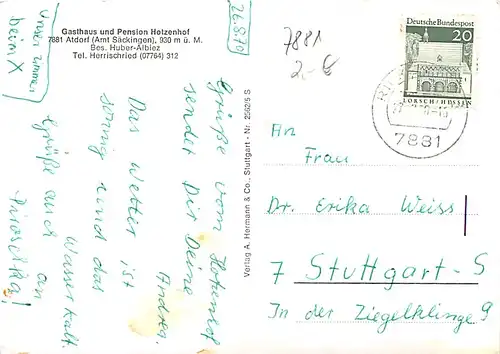 Gasthaus und Pension Hotzenhof
7881 Atdorf (Amt Säckingen), 930 m ü. M.
Bes. Huber-Albiez
Tel. Herrischried (07764) 312
unser Zimmer
beim X
26.8.70
Grüße vom Hotzenhof
sendet Dir Deine
Andrea.
Das Wetter ist
sonnig und das
Wasser kalt.
Grüße auch an
Piroschka!
Verlag A. Hermann & Co., Stuttgart - Nr. 2562/5 S
7881
2.- €
Deutsche Bundespost
20
LORSCH/HESSEN
7881
An
Frau
Dr. Erika Weiss
7 Stuttgart-S
In der Ziegelklinge 9